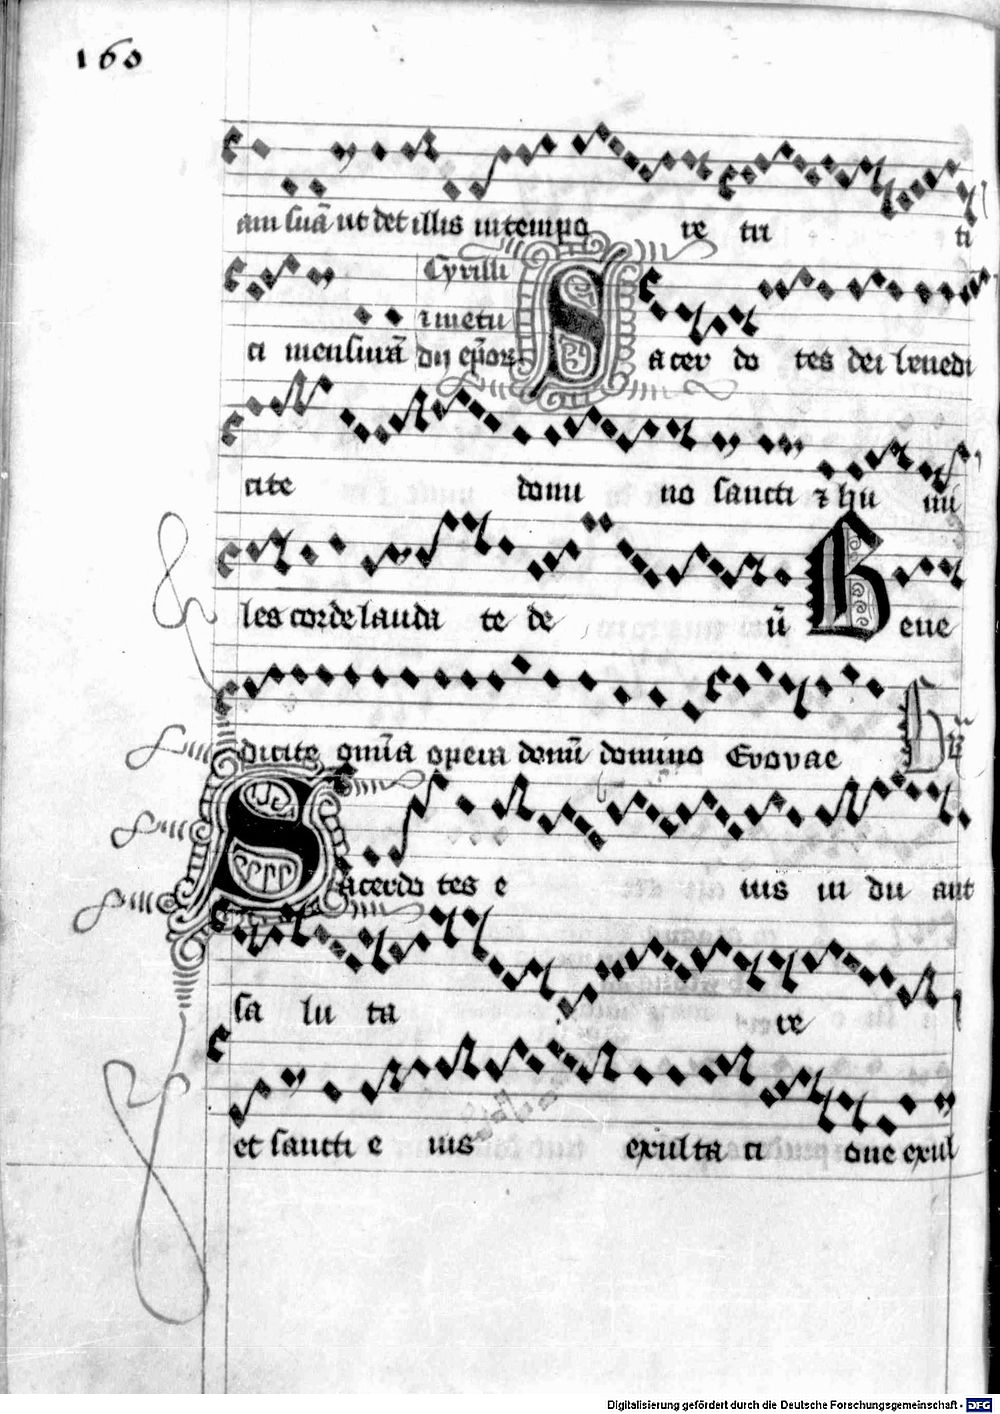 160
am suā ut det illis in tempo re tri ti
Cyrilli
ci mensurā Sacer do tes dei benedi
cite domi no sancti ⁊ hu mi
les corde lauda te de ū Bene
dicite om̄ia opera domī domino Evovae
Sacerdo tes e ius in du am
sa lu ta re
et sancti e ius exulta ti one exul
Digitalisierung gefördert durch die Deutsche Forschungsgemeinschaft - DFG